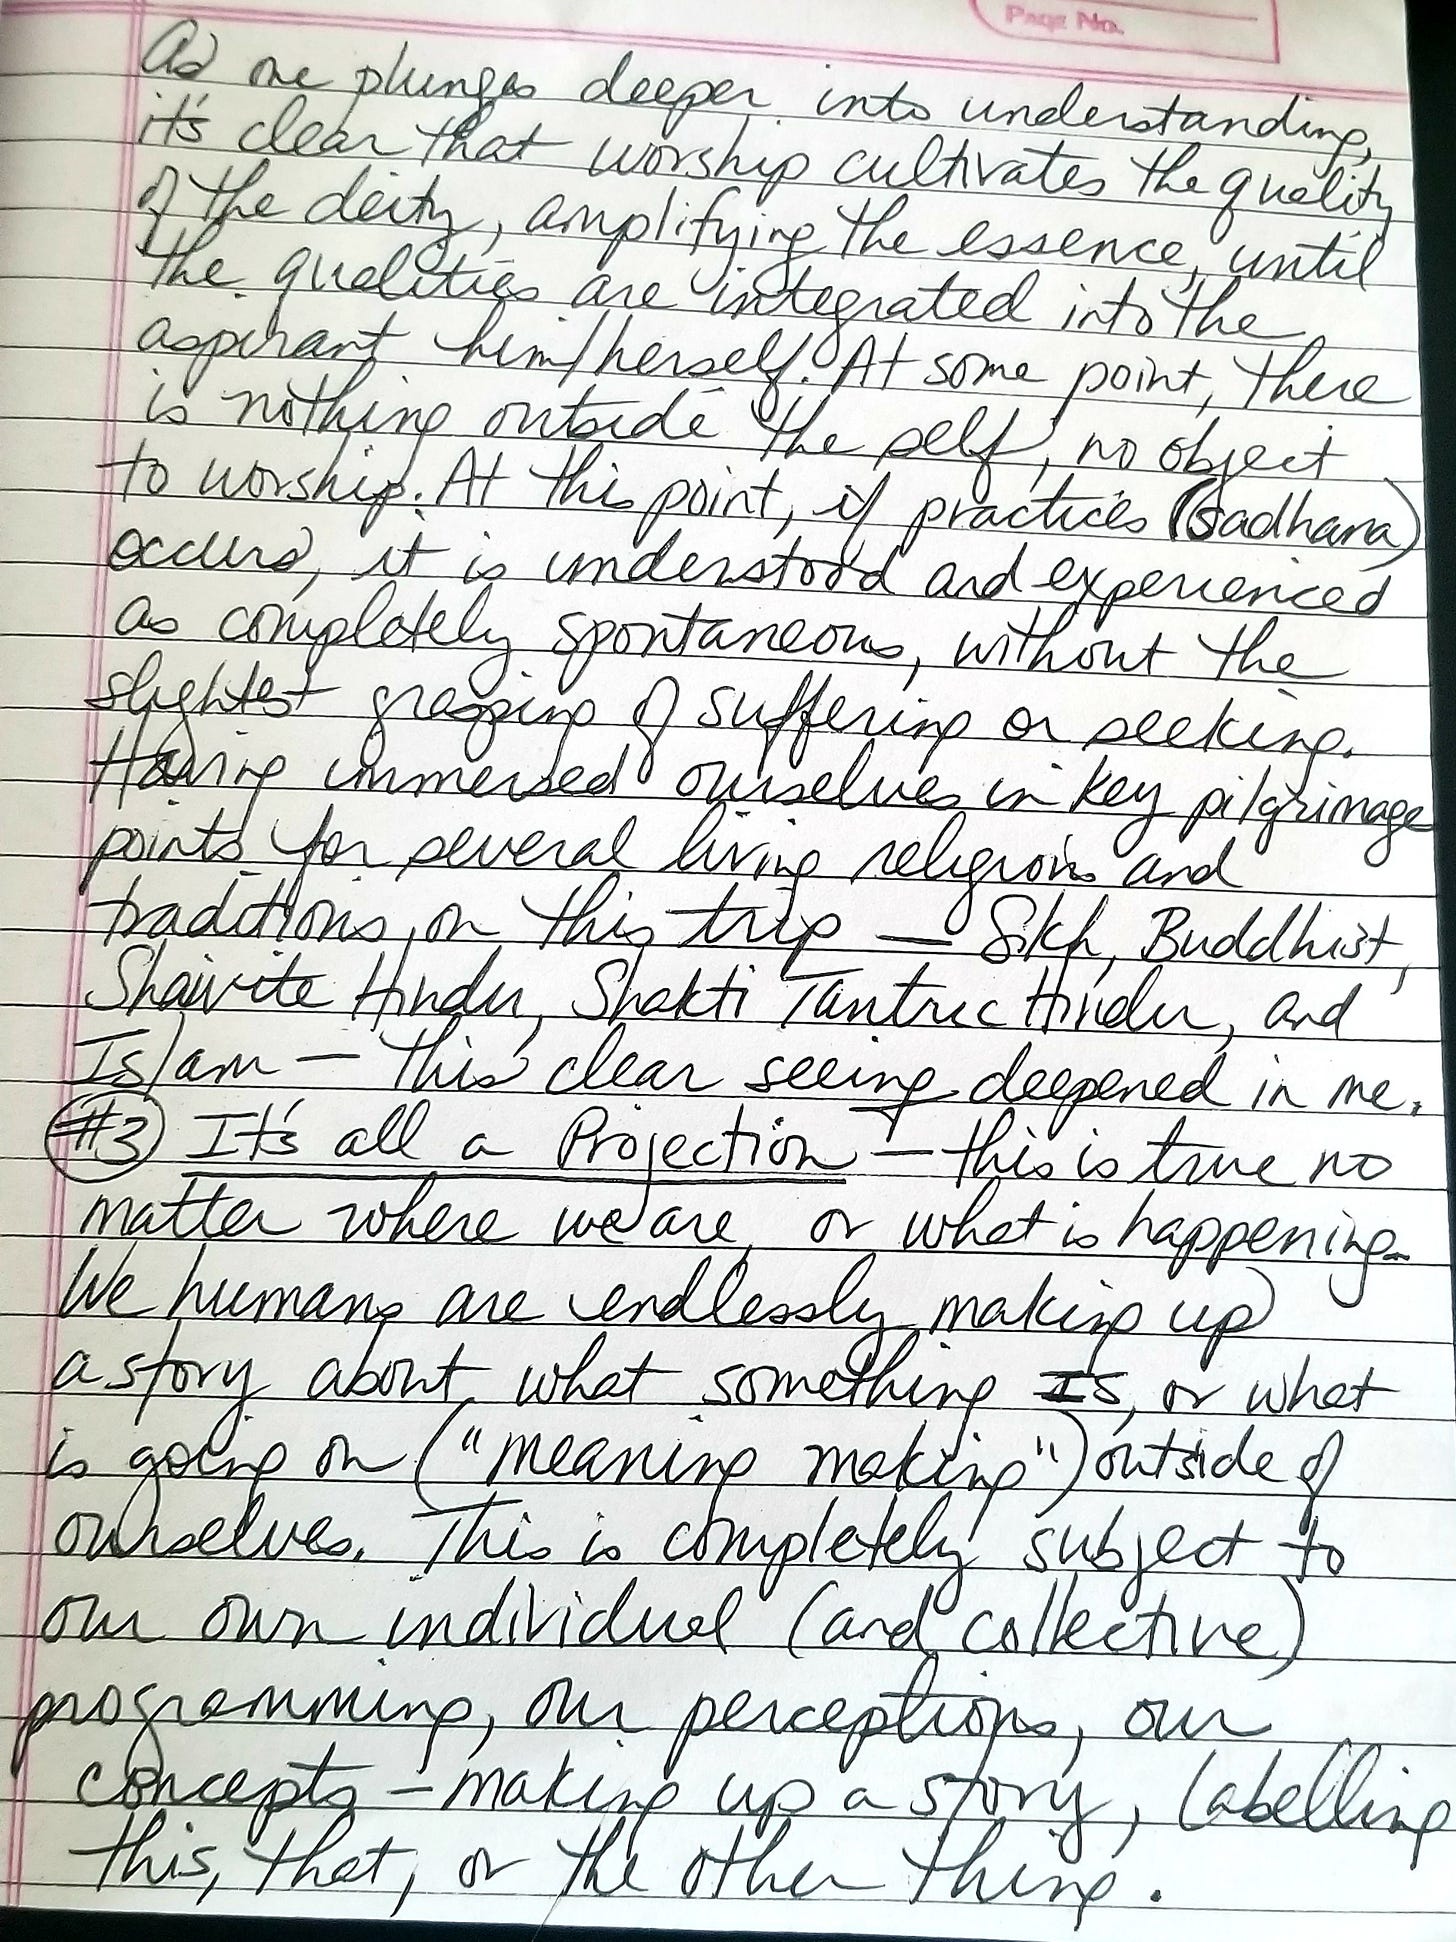 Page No.
As one plunges deeper into understanding,
it's clear that worship cultivates the quality
of the deity, amplifying the essence, until
the qualities are integrated into the
aspirant him/herself. At some point, there
is nothing outside the self, no object
to worship. At this point, if practices (sadhana)
occurs, it is understood and experienced
as completely spontaneous, without the
slightest grasping of suffering or seeking.
Having immersed ourselves in key pilgrimage
points for several living religions and
traditions on this trip — Sikh, Buddhist,
Shaivite Hindu, Shakti Tantric Hindu, and
Islam — this clear seeing deepened in me.
#3 It's all a Projection — this is true no
matter where we are, or what is happening.
We humans are endlessly making up
a story about what something IS, or what
is going on ("meaning making") outside of
ourselves. This is completely subject to
our own individual (and collective)
programming, our perceptions, our
concepts — making up a story, labelling
this, that, or the other thing.